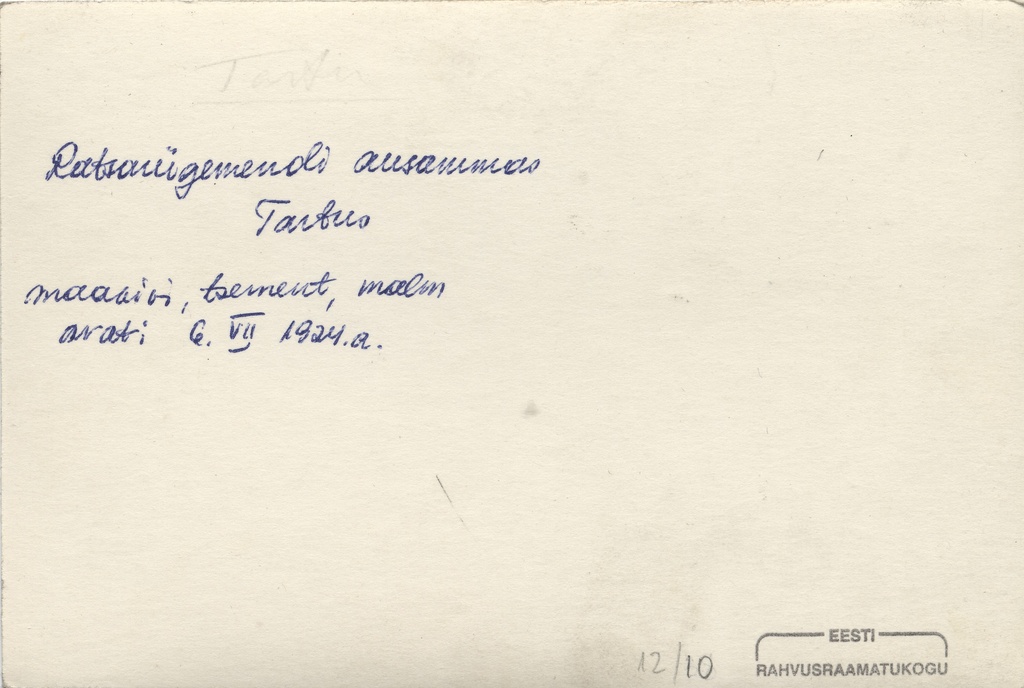 Tartu
Ratsarügemendi ausammas
Tartus
maakivi, tsement, malm
avati 6. VII 1924.a.
12/10
EESTI
RAHVUSRAAMATUKOGU